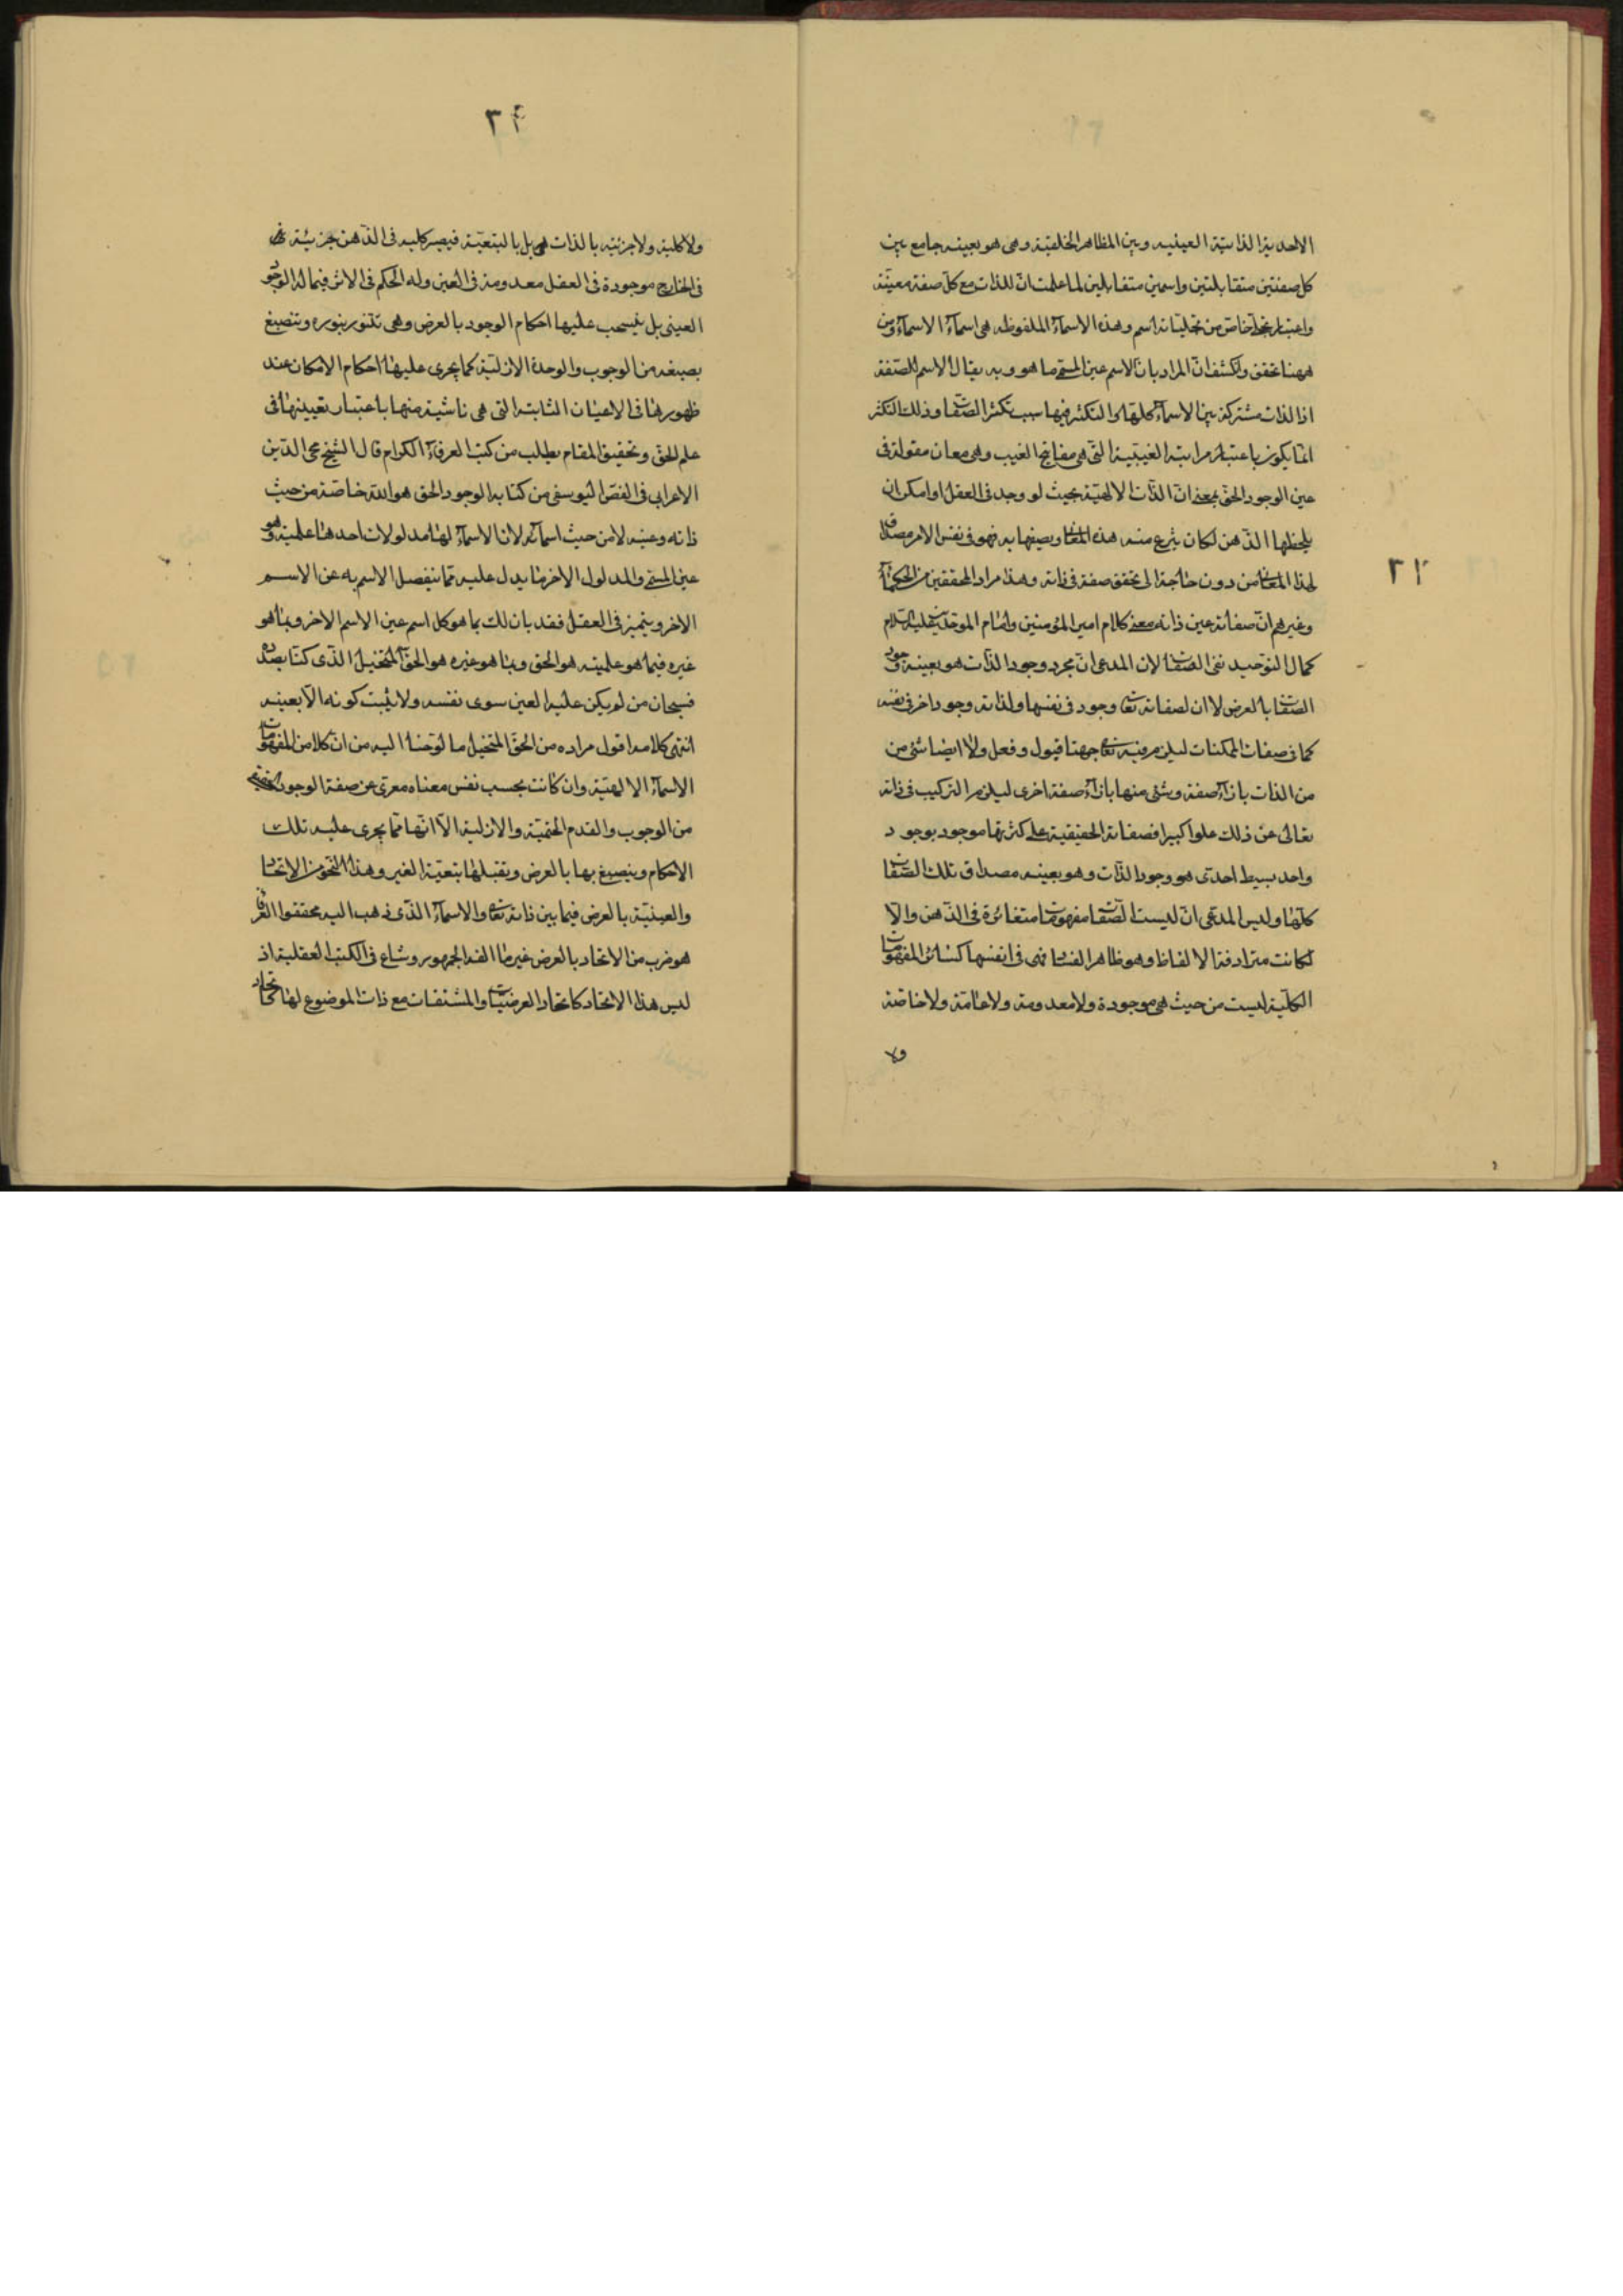 الاحدية الذاتية العينيه وبين المظاهر الخلقية وهى هو بعينه جامع بين
كل صفتين متقابلتين واسمين متقابلين لما علمت ان للذات مع كل صفة معينة
واعتبار تجل خاص من تجلياته اسم وهذه الاسماء الملفوظه هى اسماء الاسماء ومن
ههنا تحقق وانكشف ان المراد بان الاسم عين المسمى ما هو وبه يقال الاسم للصفة
اذ الذات مشتركة بين الاسماء كلها والتكثر فيها بسبب تكثر الصفات وذلك التكثر
انما يكون باعتبار مراتبه الغيبية التى هى مفاتيح الغيب وهى معان معقولة فى
عين الوجود الحق بمعنى ان الذات الالهية بحيث لو وجد فى العقل او امكن ان
يلحظها الذهن لكان ينتزع منه هذه المعانى ويصفها به فهو فى نفس الامر مصداق
٢٣
لهذا المعانى من دون حاجة الى تحقق صفة فى ذاته وهذا مراد المحققين من الحكماء
وغيرهم ان صفاته عين ذاته ومعنى كلام امير المؤمنين وامام الموحدين عليه السلام
كمال التوحيد نفى الصفات لان المدعى ان مجرد وجود الذات هو بعينه وجود
الصفات بالعرض لا ان لصفاته تعالى وجود فى نفسها ولذاته وجود اخر فى نفسه
كما فى صفات الممكنات ليلزم فيه تعالى جهتا قبول وفعل ولا ايضا شئ من
من الذات بازاء صفة وشئ منها بازاء صفة اخرى ليلزم التركيب فى ذاته
تعالى عن ذلك علوا كبيرا فصفاته الحقيقية على كثرتها موجود بوجود
واحد بسيط احدى هو وجود الذات وهو بعينه مصداق تلك الصفات
كلها وليس المدعى ان ليست الصفات مفهومات متغائرة فى الذهن والا
لكانت مترادفة الالفاظ وهو ظاهر الفساد فهى فى انفسها كسائر المفهومات
الكلية ليست من حيث هى موجودة ولا معدومة ولا عامة ولا خاصة
ولا
٢٤
ولا كلية ولا جزئية بالذات بل بالتبعية فيصير كليه فى الذهن جزئية
فى الخارج موجودة فى العقل معدومة فى العين وله الحكم فى الاثر فيما له الوجود
العينى بل ينسحب عليها احكام الوجود بالعرض وهى تتنور بنوره وتنصبغ
بصبغه من الوجوب والوحدة الازلية كما يجرى عليها احكام الامكان عند
ظهورها فى الاعيان الثابتة التى هى ناشية منها باعتبار تعيينها فى
علم الحق وتحقيق المقام يطلب من كتب العرفاء الكرام قال الشيخ محى الدين
الاعرابى فى الفص اليوسفى من كتابه الوجود الحق هو الله خاصة من حيث
ذاته وعينه لا من حيث اسمائه لان الاسماء لها مدلولات احدها علمية وهو
عين المسمى والمدلول الاخر ما يدل عليه مما ينفصل الاسم به عن الاسم
الاخر ويتميز فى العقل فقد بان لك بما هو كل اسم عين الاسم الاخر وبما هو
غيره فيما هو علمينه هو الحق وبما هو غيره هو الحق المتخيل الذى كنا بصدده
فسبحان من لم يكن عليه العين سوى نفسه ولا يثبت كونه الا بعينه
انتهى كلامه اقول مراده من الحق المتخيل ما لوحنا اليه من ان كلا من المفهومات
الاسماء الالهية وان كانت بحسب نفس معناه معرى عن صفة الوجود
من الوجوب والقدم الحتمية والازلية الا انها مما يجرى عليه تلك
الاحكام وينصبغ بها بالعرض ويقبلها بتبعية الغير وهذا النحو من الاتحاد
والعينية بالعرض فيما بين ذاته تعالى والاسماء الذى ذهب اليه محققوا العرفا
هو ضرب من الاتحاد بالعرض غير ما الفه الجمهور وشاع فى الكتب العقلية اذ
ليس هذا الاتحاد كاتحاد العرضيات والمشتقات مع ذات الموضوع لها